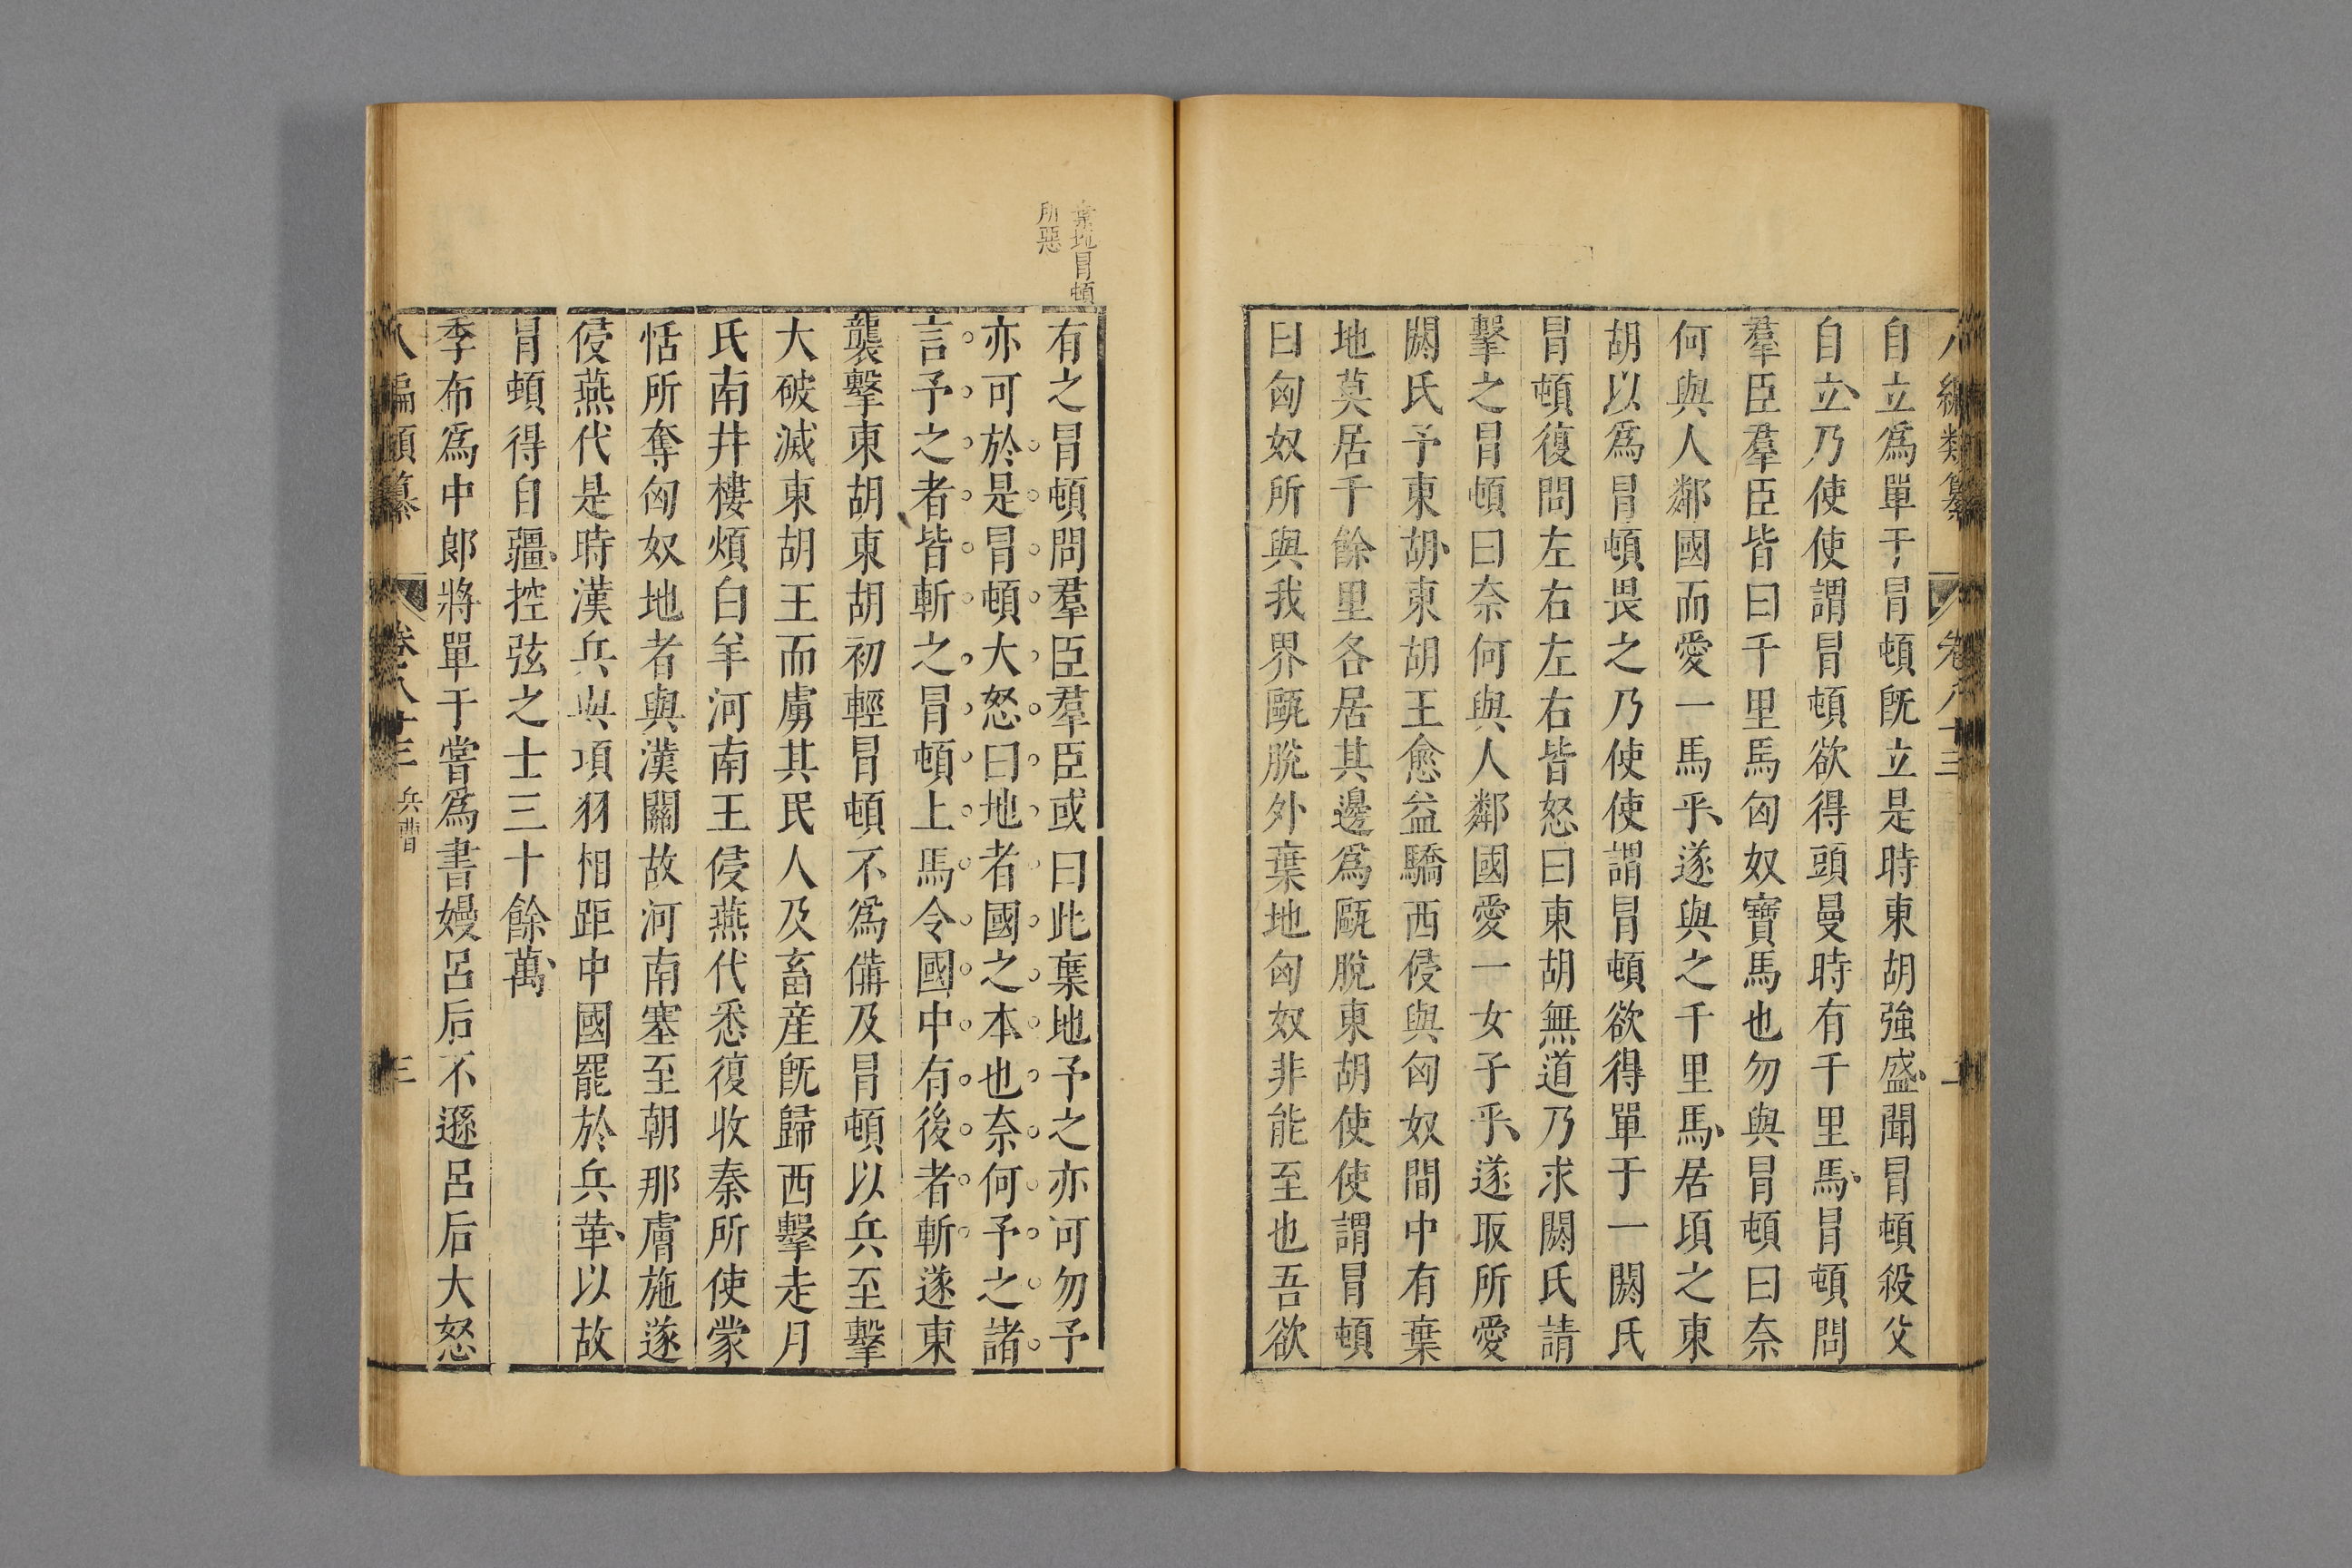 八編類纂 卷八十三 二
自立爲單于冒頓旣立是時東胡強盛聞冒頓殺父
自立乃使使謂冒頓欲得頭曼時有千里馬冒頓問
羣臣羣臣皆曰千里馬匈奴寶馬也勿與冒頓曰奈
何與人鄰國而愛一馬乎遂與之千里馬居頃之東
胡以爲冒頓畏之乃使使謂冒頓欲得單于一閼氏
冒頓復問左右左右皆怒曰東胡無道乃求閼氏請
擊之冒頓曰奈何與人鄰國愛一女子乎遂取所愛
閼氏予東胡東胡王愈益驕西侵與匈奴間中有棄
地莫居千餘里各居其邊爲甌脫東胡使使謂冒頓
曰匈奴所與我界甌脫外棄地匈奴非能至也吾欲
棄地冒頓
所惡
有之冒頓問羣臣羣臣或曰此棄地予之亦可勿予
亦可於是冒頓大怒曰地者國之本也奈何予之諸
言予之者皆斬之冒頓上馬令國中有後者斬遂東
襲擊東胡東胡初輕冒頓不爲備及冒頓以兵至擊
大破滅東胡王而虜其民人及畜產旣歸西擊走月
氏南井樓煩白羊河南王侵燕代悉復收秦所使蒙
恬所奪匈奴地者與漢關故河南塞至朝那膚施遂
侵燕代是時漢兵與項羽相距中國罷於兵革以故
冒頓得自疆控弦之士三十餘萬
季布爲中郎將單于嘗爲書嫚呂后不遜呂后大怒
八編類纂 卷八十三 兵曹 三